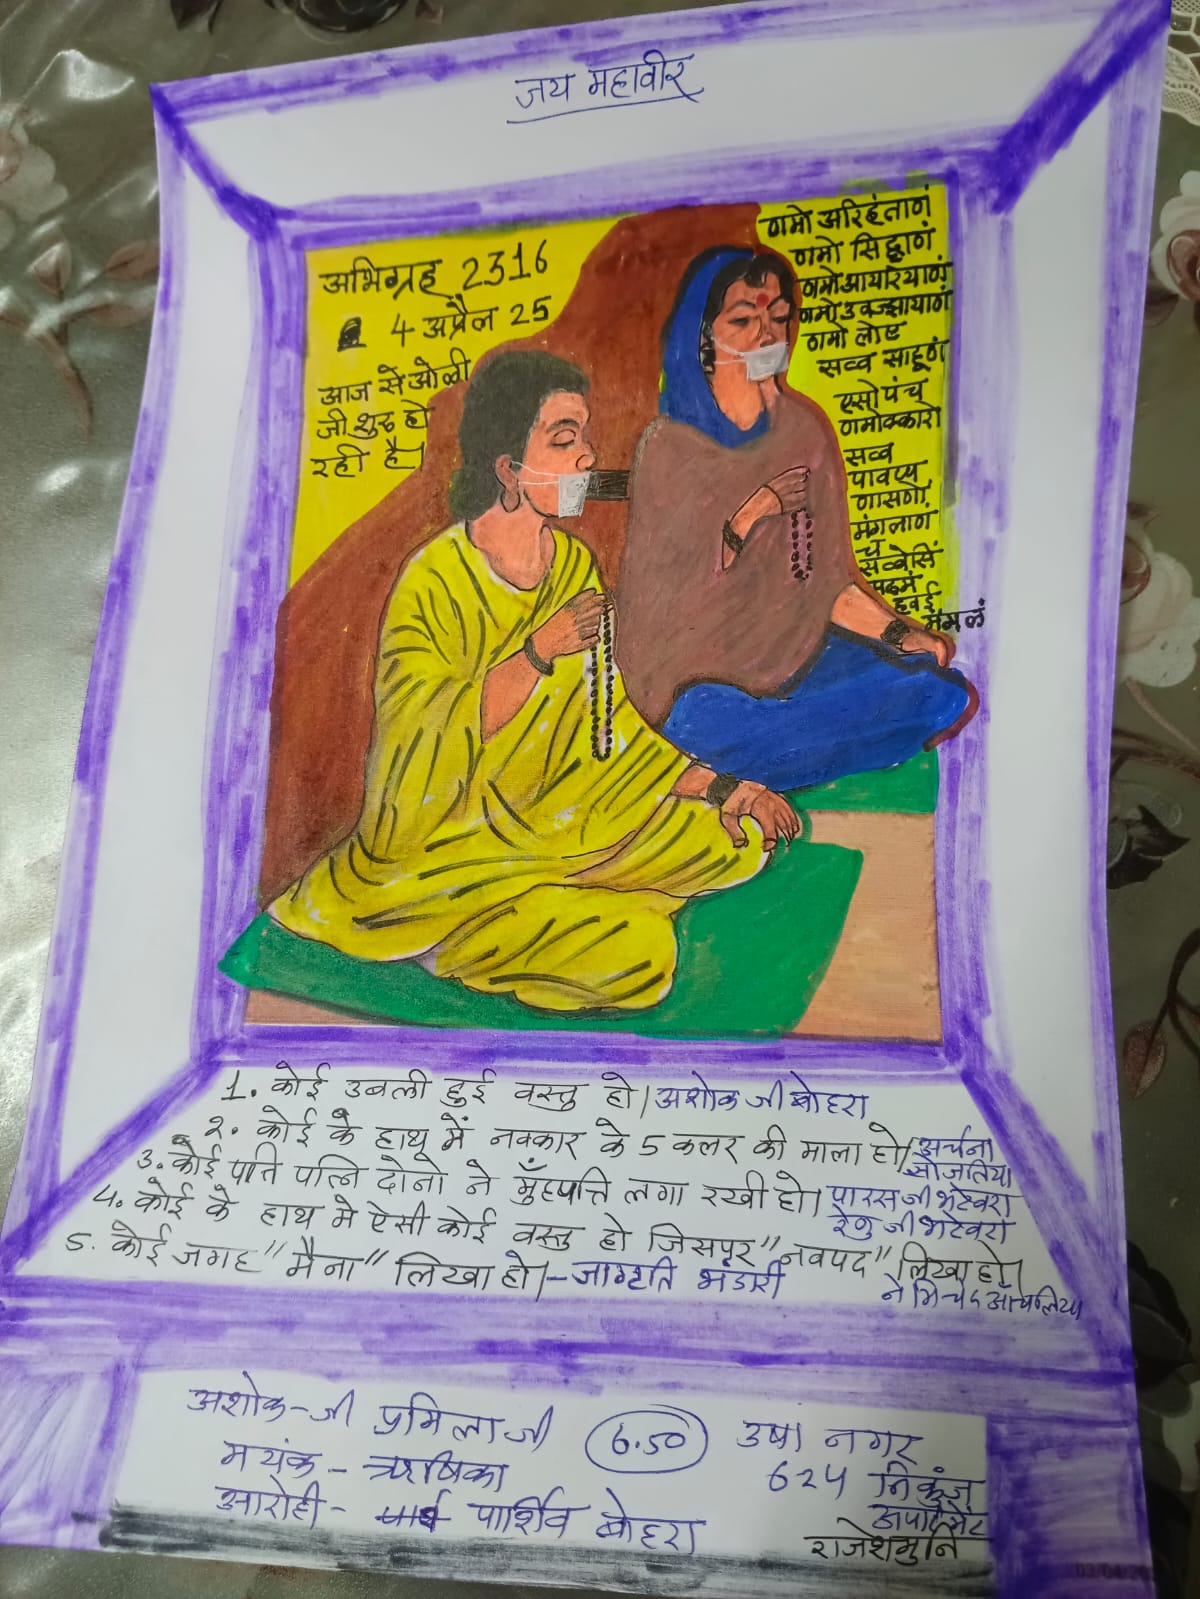 जय महावीर
अभिग्रह 2316
4 अप्रैल 25
आज से ओली
जी शुरु हो
रही है।
णमो अरिहंताणं
णमो सिद्धाणं
णमो आयरियाणं
णमो उवज्झायाणं
णमो लोए
सव्व साहूणं
एसो पंच
णमोक्कारो
सव्व
पावप्प
णासणो
मंगलाणं
च
सव्वेसिं
पढमं
हवई
मंगलं
1. कोई उबली हुई वस्तु हो। अशोक जी बोहरा
2. कोई के हाथ में नवकार के 5 कलर की माला हो। अर्चना
सोजतिया
3. कोई पति पत्नि दोनो ने मुँहपत्ति लगा रखी हो। पारस जी भटेवरा
रेणु जी भटेवरा
4. कोई के हाथ मे ऐसी कोई वस्तु हो जिसपर "नवपद" लिखा हो।
5. कोई जगह "मैना" लिखा हो। - जागृति भंडारी
अशोक-जी प्रमिला जी 6.50 उषा नगर
मयंक - ऋषिका 624 निकुंज
अपार्टमेंट
आरोही - पार्श्व पार्शिव बोहरा राजेशमुनि